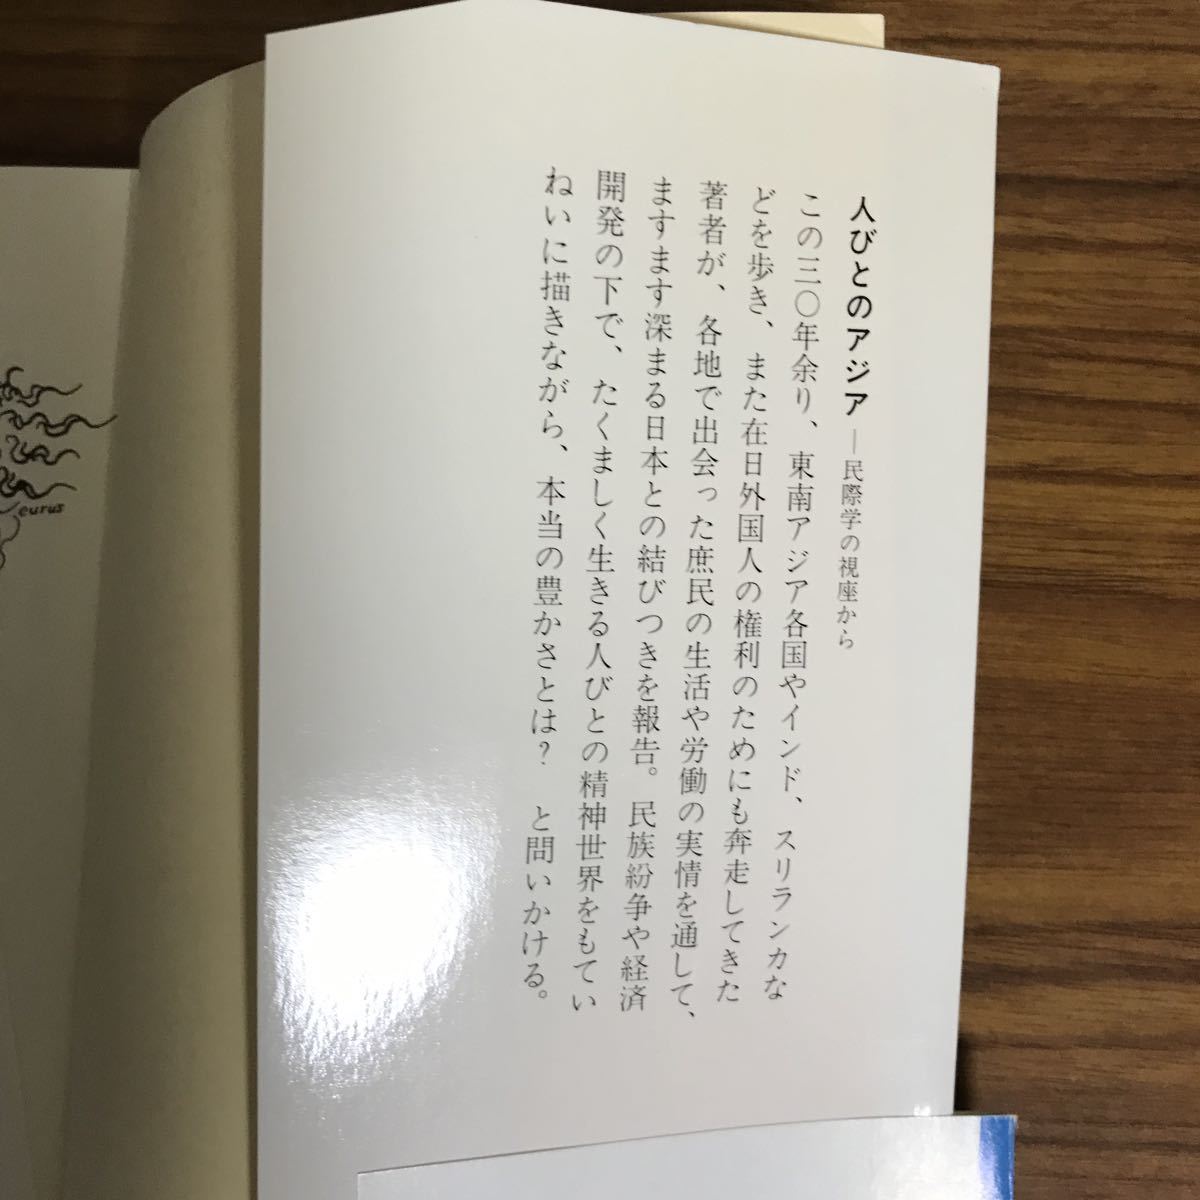 人びとのアジア―民際学の視座から
この三〇年余り、東南アジア各国やインド、スリランカな
どを歩き、また在日外国人の権利のためにも奔走してきた
著者が、各地で出会った庶民の生活や労働の実情を通して、
ますます深まる日本との結びつきを報告。民族紛争や経済
開発の下で、たくましく生きる人びとの精神世界をもてい
ねいに描きながら、本当の豊かさとは？　と問いかける。
eurus